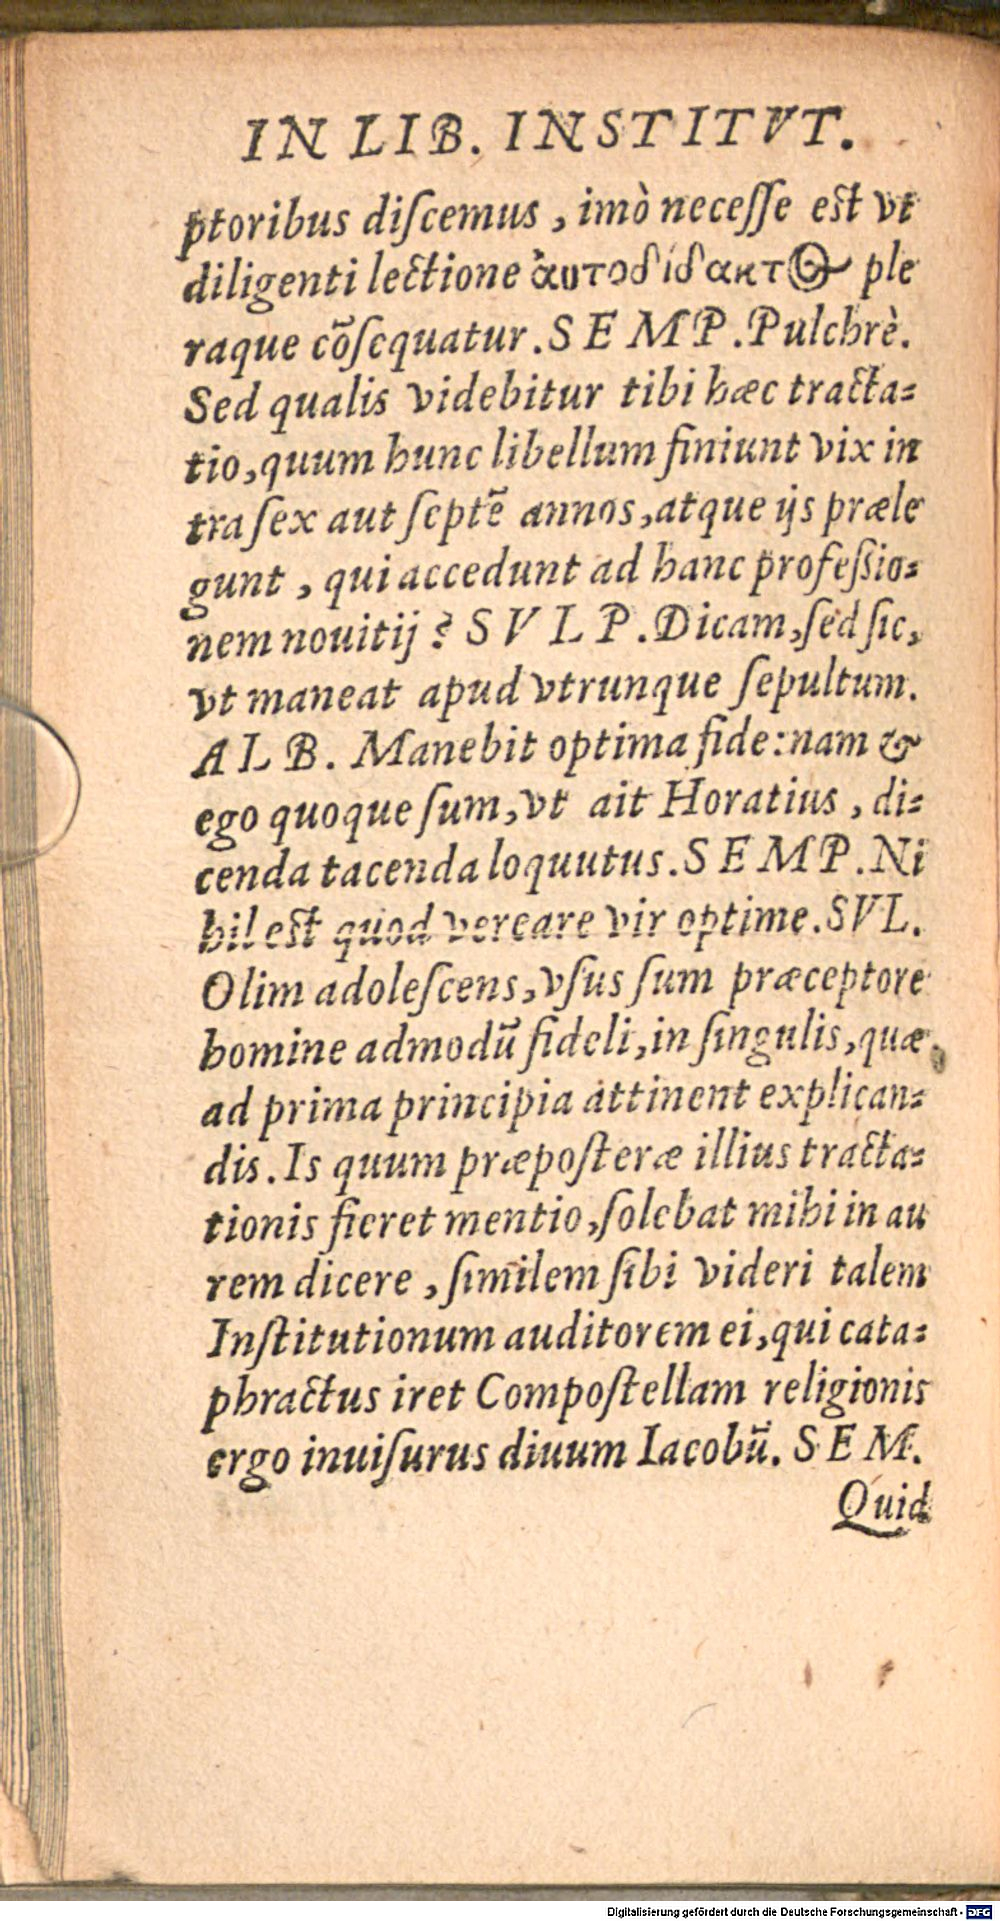 IN LIB. INSTITVT.
ptoribus diſcemus, imò neceſſe est vt
diligenti lectione ἀυτοδίδακτος ple
raque cōſequatur. SEMP. Pulchrè.
Sed qualis videbitur tibi hæc tracta-
tio, quum hunc libellum finiunt vix in
tra ſex aut ſeptē annos, atque ijs præle
gunt, qui accedunt ad hanc profeſsio-
nem nouitij? SVLP. Dicam, ſed ſic,
vt maneat apud vtrunque ſepultum.
ALB. Manebit optima fide: nam &
ego quoque ſum, vt ait Horatius, di-
cenda tacenda loquutus. SEMP. Ni
hil est quod vereare vir optime. SVL.
Olim adoleſcens, vſus ſum præceptore
homine admodū fideli, in ſingulis, quæ
ad prima principia attinent explican-
dis. Is quum præpoſteræ illius tracta-
tionis fieret mentio, ſolebat mihi in au
rem dicere, ſimilem ſibi videri talem
Inſtitutionum auditorem ei, qui cata-
phractus iret Compoſtellam religionis
ergo inuiſurus diuum Iacobū. SEM.
Quid
Digitalisierung gefördert durch die Deutsche Forschungsgemeinschaft - DFG